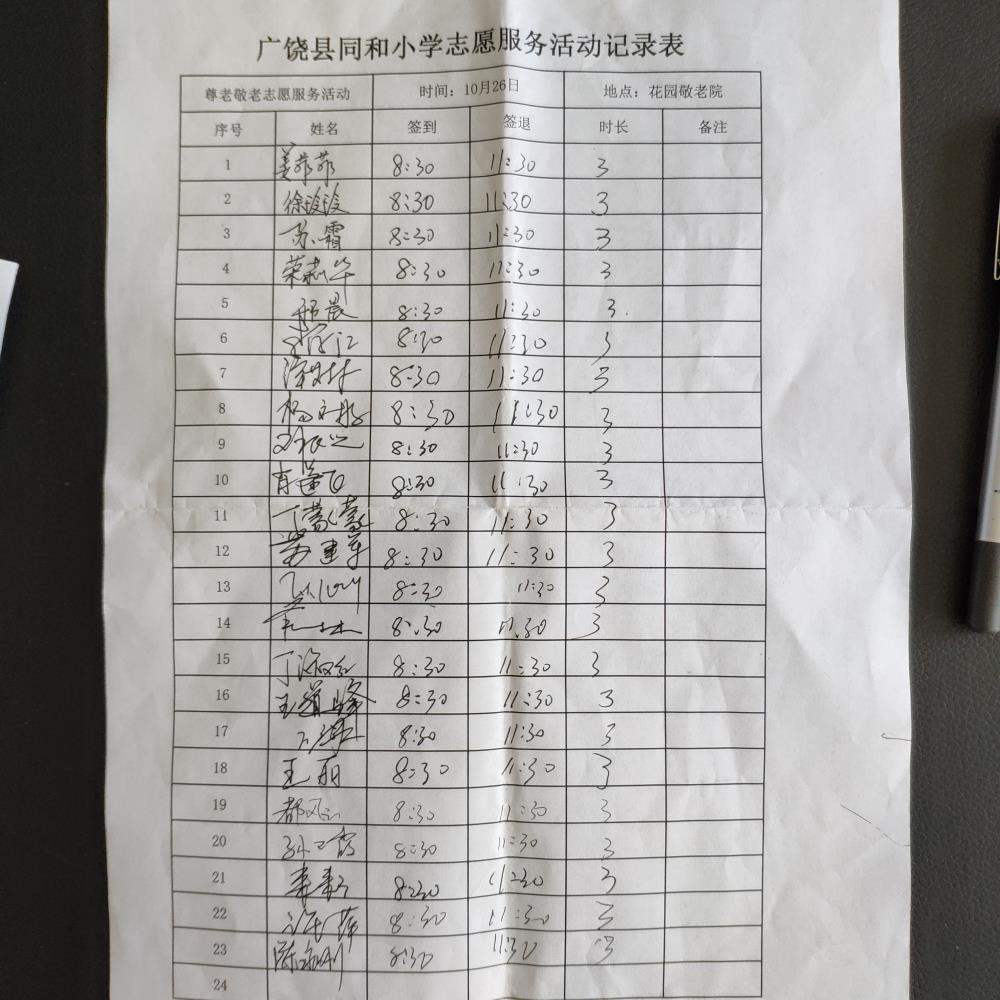 广饶县同和小学志愿服务活动记录表
尊老敬老志愿服务活动 时间：10月26日 地点：花园敬老院
序号 姓名 签到 签退 时长 备注
1 姜菲菲 8:30 11:30 3
2 8:30 11:30 3
3 苏霜 8:30 11:30 3
4 荣莉华 8:30 11:30 3
5 8:30 11:30 3.
6 8:30 11:30 3
7 8:30 11:30 3
8 8:30 11:30 3
9 8:30 11:30 3
10 8:30 11:30 3
11 丁蒙蒙 8:30 11:30 3
12 8:30 11:30 3
13 8:30 11:30 3
14 8:30 11:30 3
15 8:30 11:30 3
16 王道峰 8:30 11:30 3
17 8:30 11:30 3
18 王丽 8:30 11:30 3
19 8:30 11:30 3
20 8:30 11:30 3
21 8:30 11:30 3
22 许萍 8:30 11:30 3
23 8:30 11:30 3
24